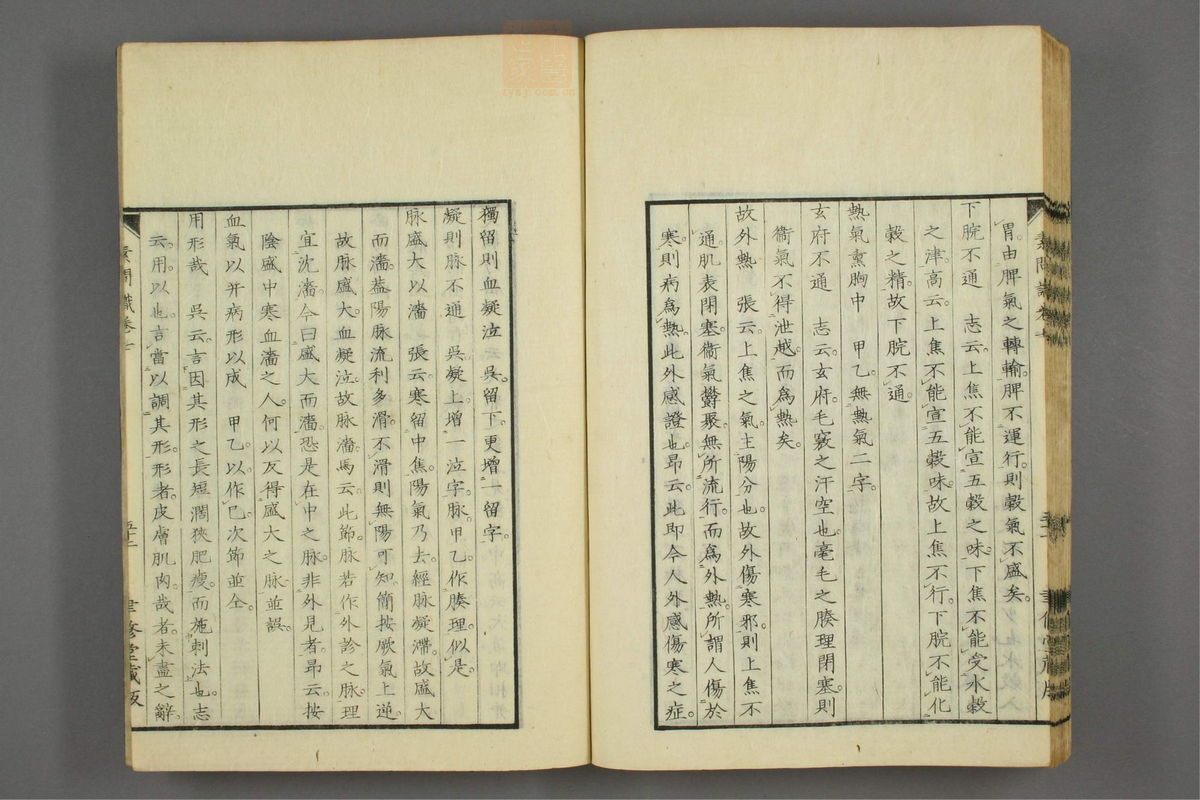 胃。由脾氣之轉輸。脾不運行。則穀氣不盛矣。
下脘不通　志云。上焦不能宣五穀之味。下焦不能受水穀
之津。高云。上焦不能宣五穀味。故上焦不行。下脘不能化
穀之精。故下脘不通。
熱氣熏胸中　甲乙。無熱氣二字。
玄府不通　志云。玄府。毛竅之汗空也。毫毛之腠理閉塞。則
衞氣不得泄越。而爲熱矣。
故外熱　張云。上焦之氣。主陽分也。故外傷寒邪。則上焦不
通。肌表閉塞。衞氣鬱聚。無所流行。而爲外熱。所謂人傷於
寒。則病爲熱。此外感證也。昻云。此即今人外感傷寒之症。
獨留則血凝泣　吳。留下。更增一留字。
凝則脉不通　吳。凝上。增一泣字。脉。甲乙。作腠理。似是。
脉盛大以濇　張云。寒留中焦。陽氣乃去。經脉凝滯。故盛大
而濇。葢陽脉流利多滑。不滑則無陽可知。簡按厥氣上逆。
故脉盛大。血凝泣。故脉濇。馬云。此節脉若作外診之脉。理
宜沈濇。今曰盛大而濇。恐是在中之脉。非外見者。昻云。按
陰盛中寒血濇之人。何以反得盛大之脉。並誤。
血氣以并病形以成　甲乙。以。作已。次節並仝。
用形哉　吳云。言因其形之長短濶狹肥瘦。而施刺法也。志
云。用。以也。言當以調其形。形者。皮膚肌肉。哉者。未盡之辭。
素問識卷七
五十二
聿修堂藏版